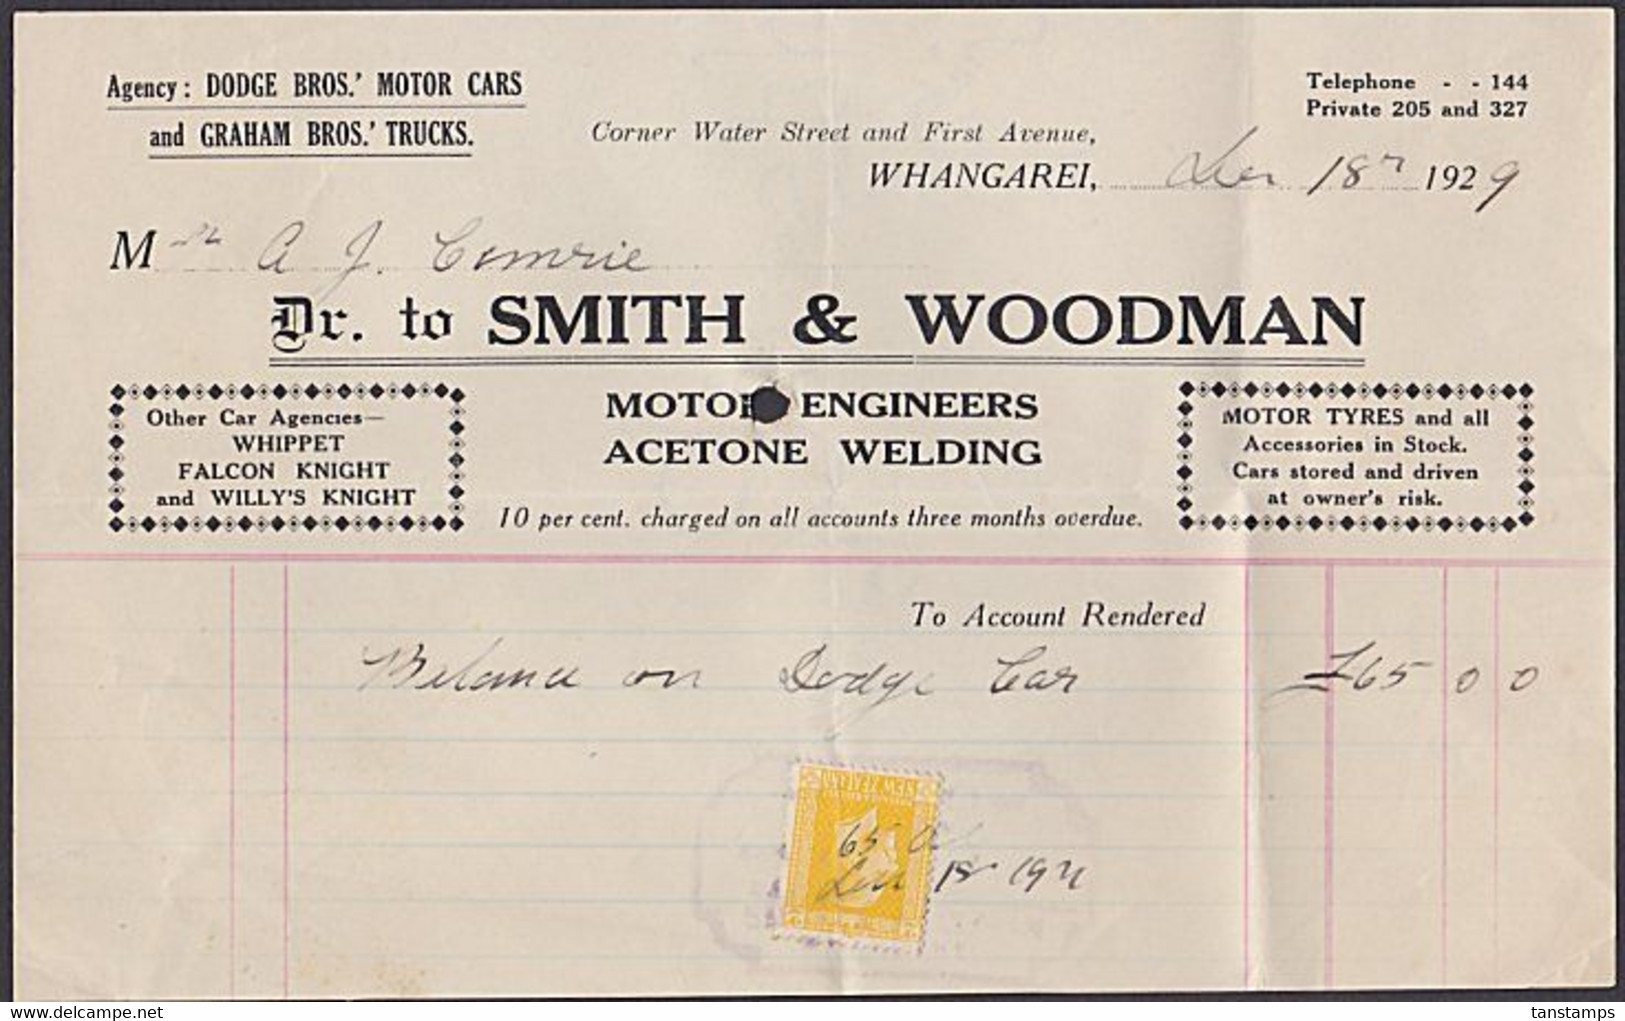 Agency: DODGE BROS.' MOTOR CARS
and GRAHAM BROS.' TRUCKS.
Telephone - - 144
Private 205 and 327
Corner Water Street and First Avenue,
WHANGAREI, Dec 18th 1929
Mr A J. Comrie
Dr. to SMITH & WOODMAN
Other Car Agencies—
WHIPPET
FALCON KNIGHT
and WILLY'S KNIGHT
MOTOR ENGINEERS
ACETONE WELDING
10 per cent. charged on all accounts three months overdue.
MOTOR TYRES and all
Accessories in Stock.
Cars stored and driven
at owner's risk.
To Account Rendered
Balance on Dodge Car £65 0 0
NEW ZEALAND
65
Dec 18
delcampe.net
tanstamps